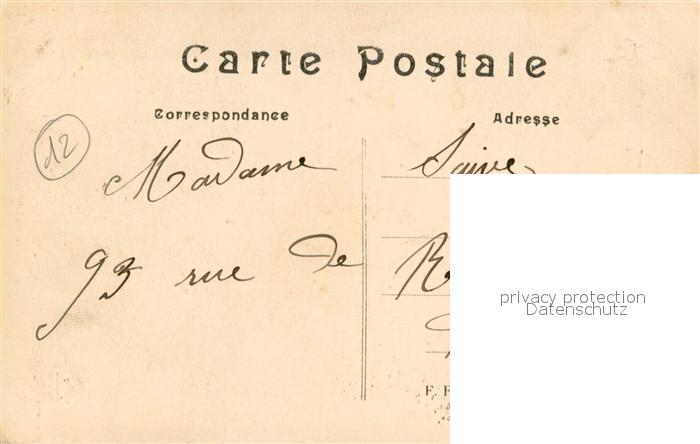 Carte Postale
Correspondance
Adresse
12
Madame
93 rue de
privacy protection
Datenschutz